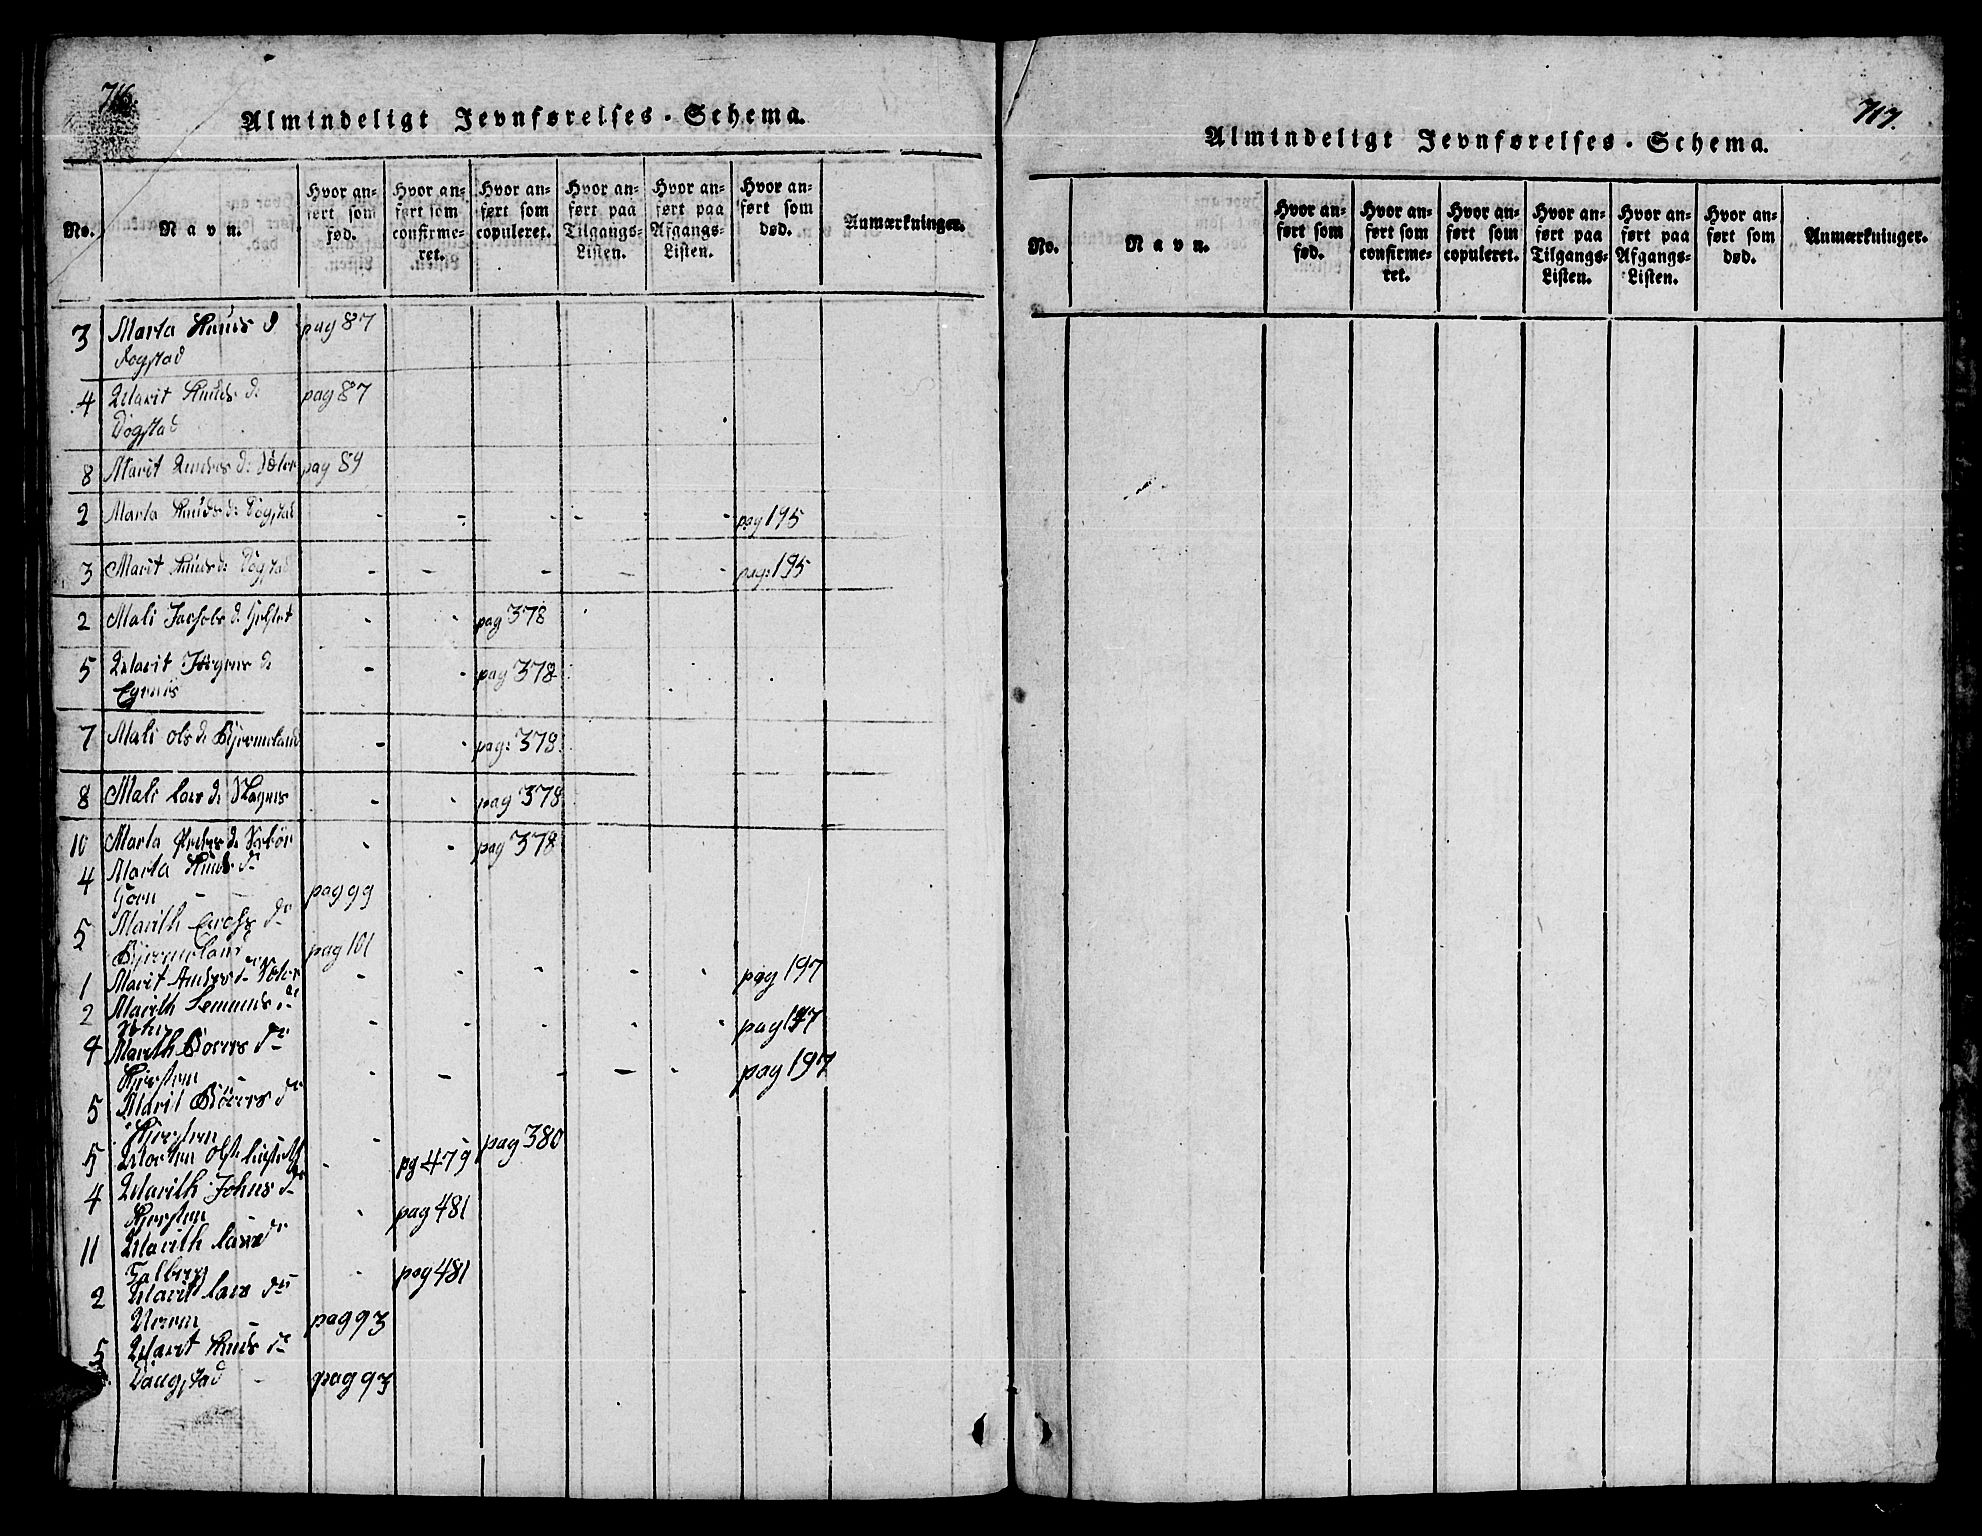 716.
Almindeligt Jevnførelses-Schema.
No.
Navn.
Hvor an-
ført som
fød.
Hvor an-
ført som
confirme-
ret.
Hvor an-
ført som
copuleret.
Hvor an-
ført paa
Tilgangs-
Listen.
Hvor an-
ført paa
Afgangs-
Listen.
Hvor an-
ført som
død.
Anmærkninger.
3 Marta Knuds d pag 87
Dogstad
4 Marit Knuds d: pag 87
Dogstad
8 Marit d: pag 89
2 Marta Knuds d: Dogstad - - - - - - pag 195
3 Marit Knuds d: Dogstad - - - - - pag: 195
2 Mali Jachobs d. - - pag 378
5 Marit d - pag 378
7 Mali Ols d. Bjermeland - - pag: 378
8 Mali Lars d. - - pag 378
10 Marta Peders d. - - pag 378
4 Marta Knuds dr
pag 99
5 Marith dr
Bjermeland pag 101
1 Marit Anders dr - - - - - pag 197
2 Marith dr
- - - - - pag 197
4 Marith dr
Hjersten - - - - - pag 197
5 Marit dr
Hjersten - pag 380
5 Morten Ols - pg 479
4 Marith Johns dr
Hjersten - pag 481
11 Marith Lars dr
- pag 481
2 Marit Lars dr
pag 93
5 Marit Knuds dr
Daugstad - pag 93
717.
Almindeligt Jevnførelses-Schema.
No.
Navn.
Hvor an-
ført som
fød.
Hvor an-
ført som
confirme-
ret.
Hvor an-
ført som
copuleret.
Hvor an-
ført paa
Tilgangs-
Listen.
Hvor an-
ført paa
Afgangs-
Listen.
Hvor an-
ført som
død.
Anmærkninger.